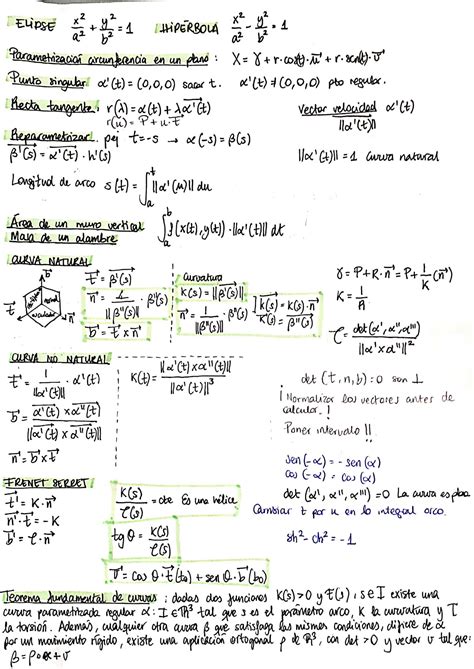 ELIPSE x²/a² + y²/b² = 1 HIPÉRBOLA x²/a² - y²/b² = 1
Parametización circunferencia en un plano : X = γ + r·cos(t)·u⃗ + r·sen(t)·v⃗
Punto singular α'(t) = (0,0,0) sacar t. α'(t) ≠ (0,0,0) pto regular.
Recta tangente. r(λ) = α(t) + λα'(t)
r(u) = P + u·t⃗
Vector velocidad α'(t) / ||α'(t)||
Reparametizar. pej t = -s → α(-s) = β(s)
β'(s) = α'(t) · h'(s)
||α'(t)|| = 1 curva natural
Longitud de arco s(t) = ∫ₐᵗ ||α'(u)|| du
Área de un muro vertical
Masa de un alambre
∫ₐᵇ f(x(t), y(t)) · ||α'(t)|| dt
CURVA NATURAL
t⃗ = β'(s)
n⃗ = 1/||β''(s)|| · β''(s)
b⃗ = t⃗ x n⃗
curvatura
K(s) = ||β''(s)||
n⃗ = 1/||β''(s)|| · β''(s)
K⃗(s) = K(s) · n⃗
K⃗(s) = β''(s)
γ = P + R·n⃗ = P + 1/K (n⃗)
K = 1/R
τ = det(α', α'', α''') / ||α' x α''||²
CURVA NO NATURAL
t⃗ = 1/||α'(t)|| · α'(t)
b⃗ = α'(t) x α''(t) / ||α'(t) x α''(t)||
n⃗ = b⃗ x t⃗
K(t) = ||α'(t) x α''(t)|| / ||α'(t)||³
det (t, n, b) : 0 son ⊥
¡ Normalizar los vectores antes de
calcular. !
Poner intervalo !!
sen(-α) = - sen(α)
cos(-α) = cos(α)
det (α', α'', α''') = 0 La curva es plana
Cambiar t por u en la integral arco.
sh² - ch² = -1
FRENET SERRET
t⃗' = K·n⃗
n⃗'·t⃗ = -K
b⃗' = τ·n⃗
K(s)/τ(s) = cte Es una hélice
tg θ = K(s)/τ(s)
v⃗ = cos θ · t⃗(t₀) + sen θ · b⃗(t₀)
Teorema fundamental de curvas : dadas dos funciones K(s) > 0 y τ(s), s ∈ I existe una
curva parametrizada regular α : I ∈ ℝ³ tal que s es el parámetro arco, K la curvatura y τ
la torsión. Además, cualquier otra curva β que satisfaga las mismas condiciones, difiere de α
por un movimiento rígido, existe una aplicación ortogonal ρ de ℝ³, con det > 0 y vector v tal que:
β = ρ∘α + v